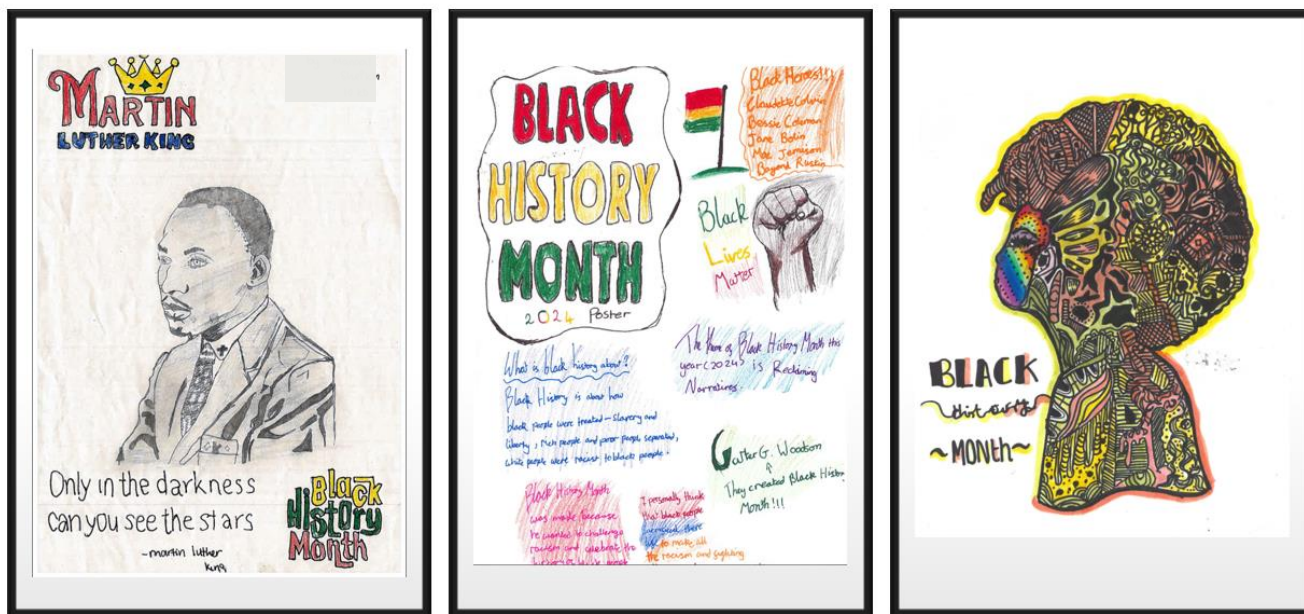 MARTIN
LUTHER KING
Only in the darkness
can you see the stars
-martin luther
king
Black
History
Month
BLACK
HISTORY
MONTH
2024 Poster
Black Heroes!!!
Claudette Colvin
Bessie Coleman
Jane Bolin
Mae Jemison
Bayard Rustin
Black
Lives
Matter
The theme of Black History Month this
year (2024) is Reclaiming
Narratives
What is black history about?
Black History is about how
black people were treated - slavery and
liberty, rich people and poor people separated,
white people were racist to black people.
G. Woodson
They created Black History
Month!!!
Black History Month
was made because
he wanted to challenge
racism and celebrate the
I personally think
that black people
to make all
the racism and
BLACK
History
~MONTH~